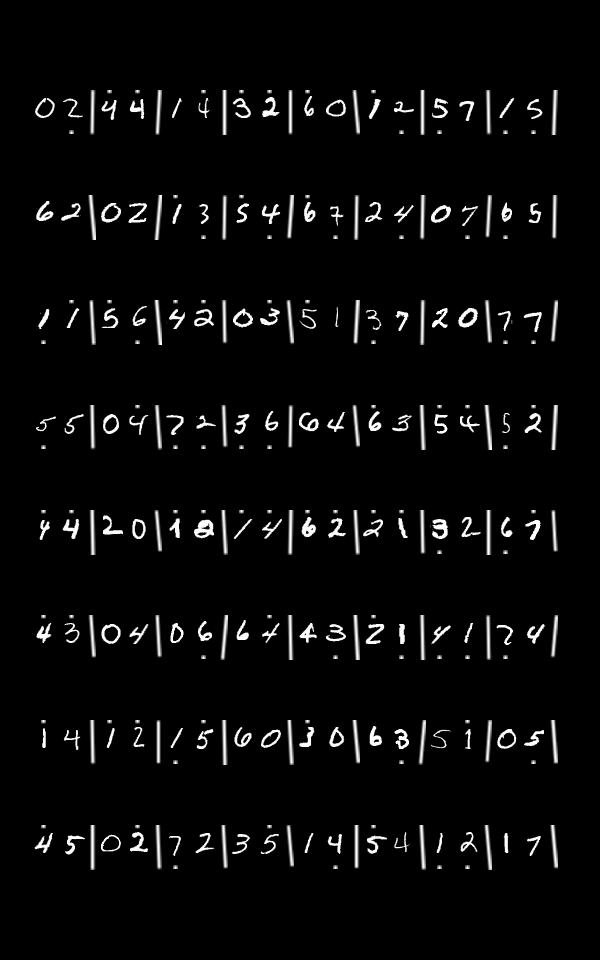 0 2̣ | 4̇ 4̇ | 1 4̇ | 3̇ 2̇ | 6̇ 0 | 1̇ 2̣ | 5̣ 7 | 1̣ 5̣ |
6 2 | 0 2 | 1̇ 3̣ | 5 4̣ | 6̇ 7̣ | 2 4̣ | 0 7̣ | 6̣ 5 |
1̣ 1̇ | 5 6̣ | 4̇ 2̇ | 0 3̇ | 5̇ 1 | 3̣ 7 | 2 0 | 7̣ 7̣ |
5̣ 5 | 0 4̇ | 7̣ 2̣ | 3̣ 6̣ | 6 4 | 6̇ 3 | 5̇ 4̇ | 5̣ 2̇ |
4̇ 4̇ | 2 0 | 1̇ 2̇ | 1 4̇ | 6̇ 2̇ | 2 1̇ | 3̣ 2 | 6̣ 7̇ |
4̇ 3̇ | 0 4 | 0 6̣ | 6 4̇ | 4 3̣ | 2̇ 1̣ | 4̣ 1̣ | 7̣ 4 |
1̇ 4 | 1̇ 2̇ | 1̣ 5̇ | 6 0 | 3̇ 0 | 6 3̣ | 5 1̇ | 0 5̣ |
4̇ 5 | 0 2̇ | 7̣ 2 | 3 5̇ | 1 4̣ | 5̇ 4 | 1̣ 2̣ | 1 7 |